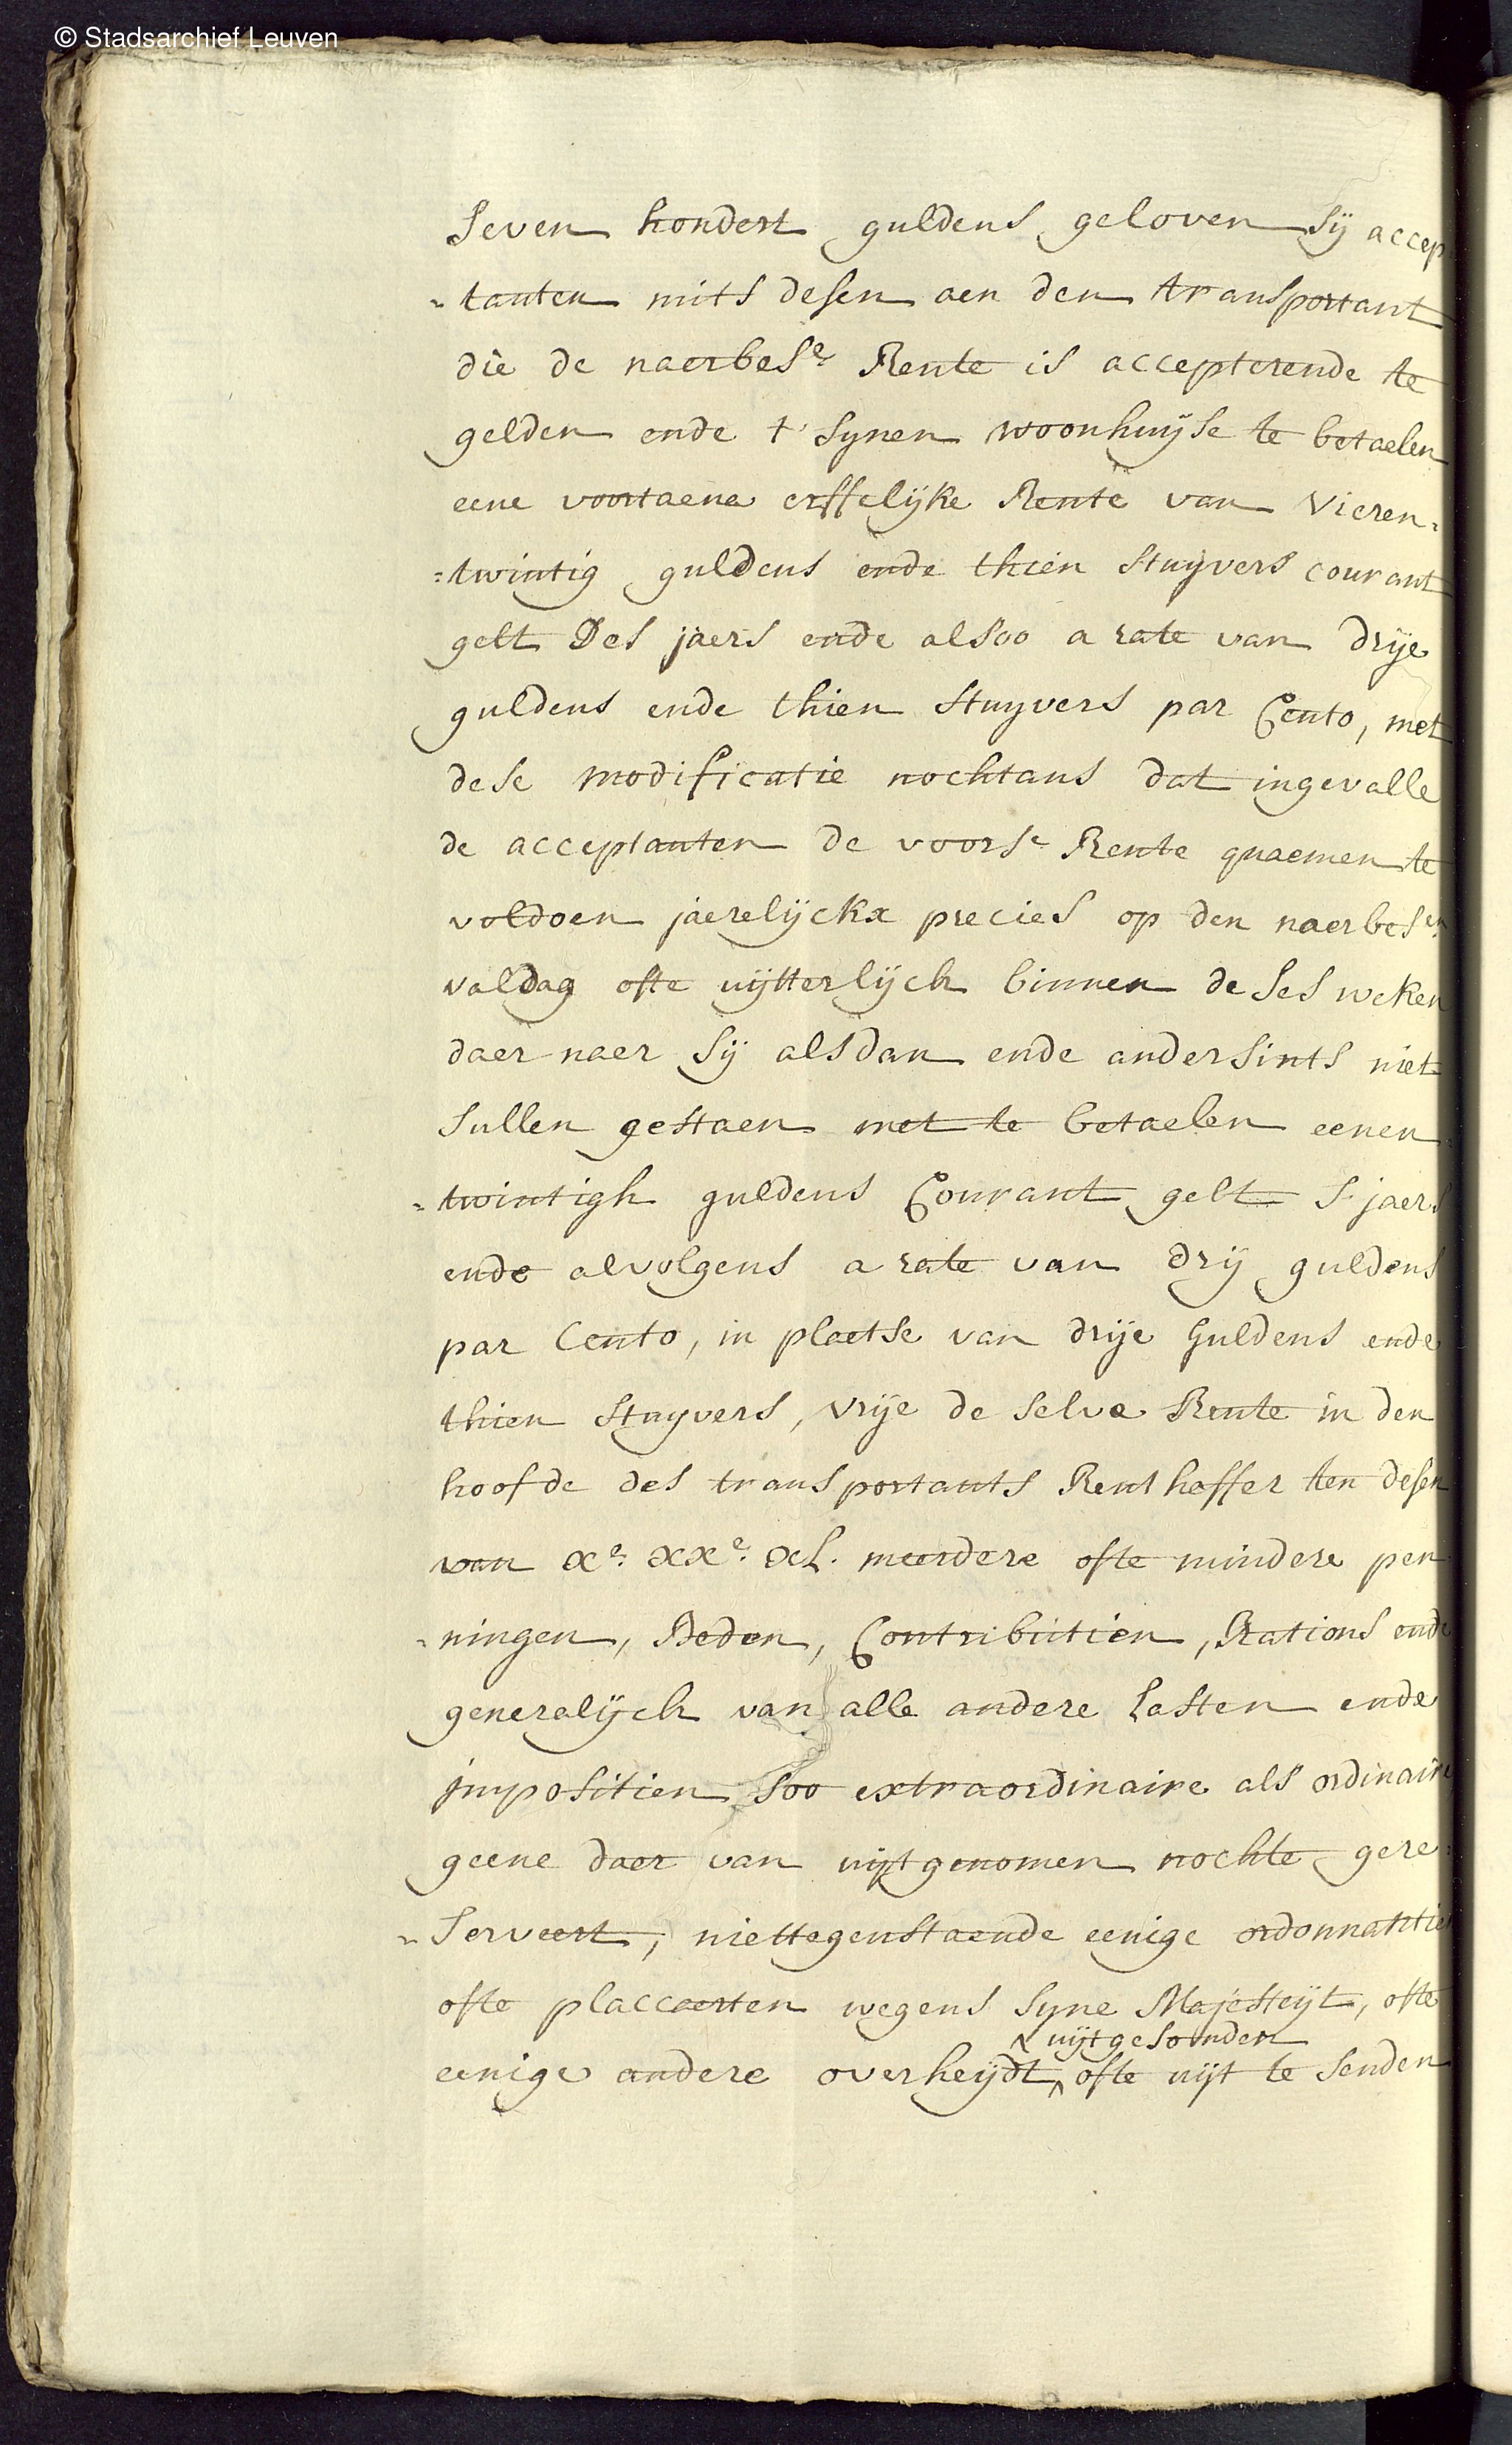 © Stadsarchief Leuven
Seven hondert guldens geloven sij accep
=tanten mits desen aen den transportant
die de naerbes.e Rente is accepterende te
gelden ende t' synen woonhuijse te betaelen
eene voortaene erffelijke Rente van vieren=
=twintig guldens ende thien stuijvers courant
gelt Des jaers ende alsoo a rate van drije
guldens ende thien stuyvers par Cento, met
dese modificatie nochtans dat ingevalle
de acceptanten de voors.e Rente quaemen te
voldoen jaerelijckx precies op den naerbes.en
valdag ofte uijtterlijck binnen de ses weken
daer naer sij alsdan ende andersints niet
sullen gestaen met te betaelen eenen
=twintigh guldens Courant gelt s'jaers
ende alvolgens a rate van drij guldens
par Cento, in plaetse van drije guldens ende
thien stuyvers, vrije de selve Rente in den
hoofde des transportants Rentheffer ten desen
van xe. xxe. xL. meerdere ofte mindere pen
=ningen, Beden, Contributien, Rations ende
generalijck van alle andere lasten ende
jmpositien soo extraordinaire als ordinaire
geene daer van uijtgenomen nochte gere=
=serveert, niettegenstaende eenige ordonnantie
ofte placcaerten wegens syne Majesteijt, ofte
uijtgesonden
eenige andere overheijdt, ofte uijt te senden